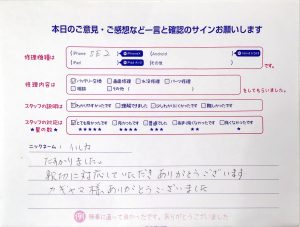 本日のご意見・ご感想など一言と確認のサインお願いします
修理機種は
iPhone SE2
Android
iPad
その他
修理内容は
バッテリー交換 画面修理 水没修理 パーツ修理
相談 その他
をしてもらいました。
スタッフの説明は
わかりやすかったです 理解できました 少しわかりにくかった 難しかったです
スタッフの対応は
★星の数★
とても良かった 良かったです 普通でした
★★★★★ ★★★★ ★★★ ★★ ★
ニックネーム: いしね
たすかりました。
親切に対応していただきありがとうございます
カギヤマ様、ありがとうございました
無事に直って良かったです。ありがとうございました